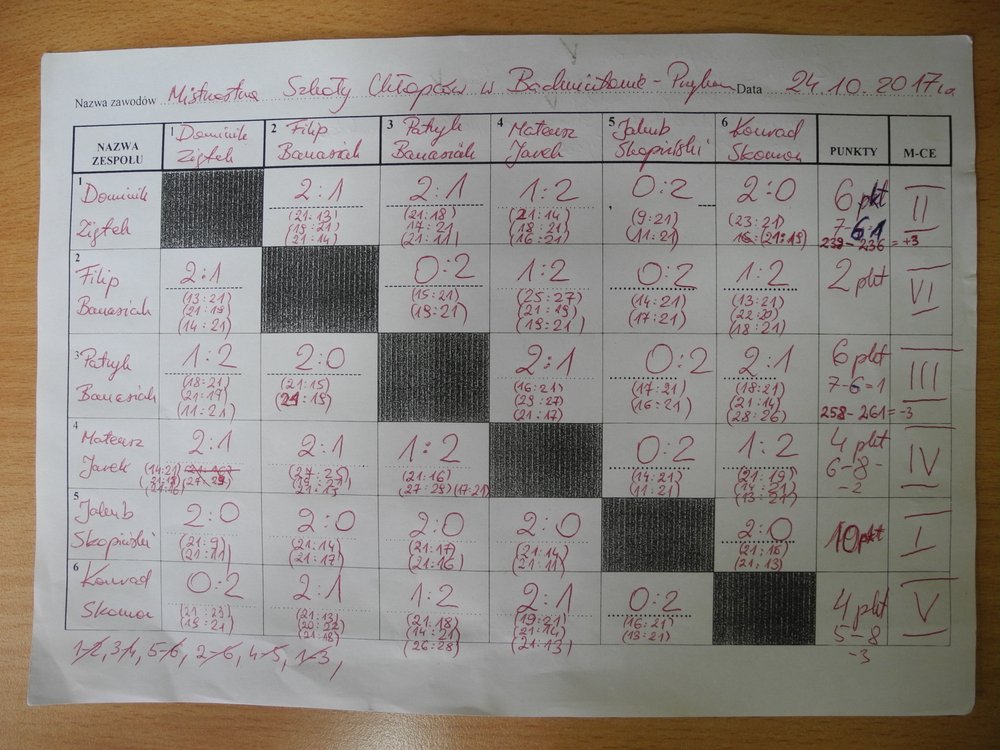 Nazwa zawodów Mistrzostwa Szkoły Chłopców w Badmintonie - Data 24.10.2017r.
NAZWA ZESPOŁU 1 Dominik Ziętek 2 Filip Banasiak 3 Patryk Banasiak 4 Mateusz Jarek 5 Jakub Skopiński 6 Konrad Skomor PUNKTY M-CE
1 Dominik Ziętek 2:1 2:1 1:2 0:2 2:0 6 pkt II
(21:13) (21:18) (21:14) (9:21) (23:21)
(19:21) 17:21 (18:21) (11:21) 21:19) 7-6 1
(21:14) (21:11) (16:21) 239-236=+3
2 Filip Banasiak 2:1 0:2 1:2 0:2 1:2 2 pkt VI
(13:21) (15:21) (25:27) (14:21) (13:21)
(21:19) (19:21) (21:19) (17:21) (22:20)
(14:21) (19:21) (18:21)
3 Patryk Banasiak 1:2 2:0 2:1 0:2 2:1 6 pkt III
(18:21) (21:15) (16:21) (17:21) (18:21) 7-6=1
(21:19) (21:19) (29:27) (16:21) (21:14)
(11:21) (21:17) (28:26) 258-261=-3
4 Mateusz Jarek 2:1 2:1 1:2 0:2 1:2 4 pkt IV
(14:21) (27:25) (21:16) (14:21) (21:19) 6-8-
(21:18) (19:21) 27:29) (17:21) 11:21) (14:21) -2
(21:16) 21:19 (13:21)
5 Jakub Skopiński 2:0 2:0 2:0 2:0 2:0 10 pkt I
(21:9) (21:14) (21:17) (21:14) (21:16)
(21:11) (21:17) (21:16) (21:11) (21:13)
6 Konrad Skomor 0:2 2:1 1:2 2:1 0:2 4 pkt V
(21:23) (21:13) (21:18) (19:21) (16:21) 5-8
(19:21) 20:22 (14:21) (21:14) (13:21) -3
(21:18) (26:28) (21:13)
1-2, 3-4, 5-6, 2-6, 4-5, 1-3,